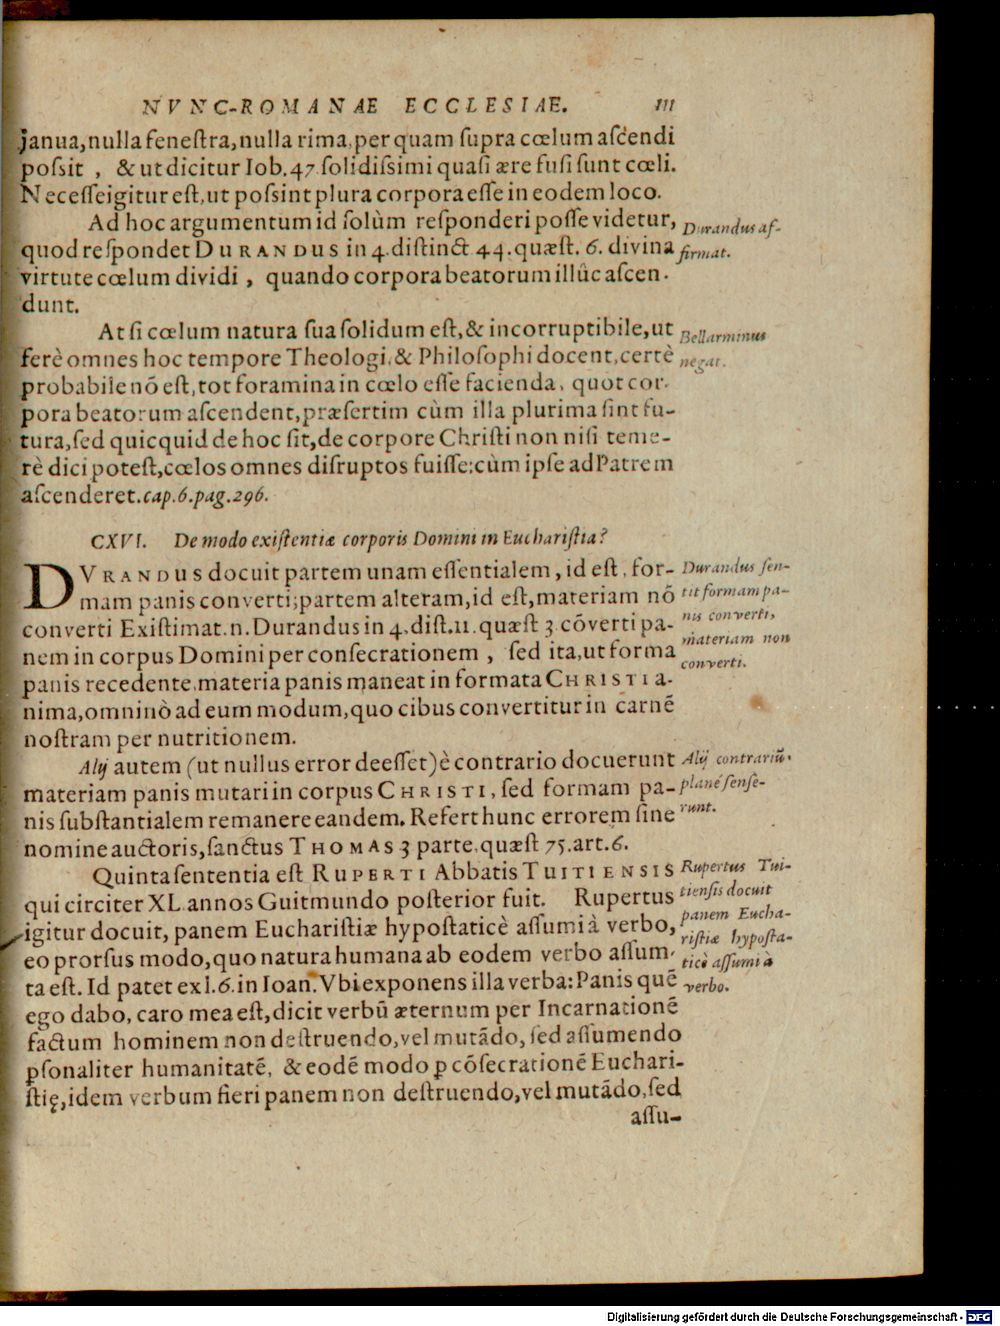 NVNC-ROMANAE ECCLESIAE. 111
janua, nulla fenestra, nulla rima, per quam supra cœlum ascendi
possit, & ut dicitur Iob. 47 solidissimi quasi ære fusi sunt cœli.
Necesse igitur est, ut possint plura corpora esse in eodem loco.
Ad hoc argumentum id solùm responderi posse videtur,
quod respondet DURANDUS in 4. distinct 44. quæst. 6. divina
virtute cœlum dividi, quando corpora beatorum illûc ascen-
dunt.
Durandus af-
firmat.
At si cœlum natura sua solidum est, & incorruptibile, ut
ferè omnes hoc tempore Theologi, & Philosophi docent, certè
probabile nõ est, tot foramina in cœlo esse facienda, quot cor-
pora beatorum ascendent, præsertim cùm illa plurima sint fu-
tura, sed quicquid de hoc sit, de corpore Christi non nisi teme-
rè dici potest, cœlos omnes disruptos fuisse: cùm ipse ad Patrem
ascenderet. cap. 6. pag. 296.
Bellarminus
negat.
CXVI. De modo existentiæ corporis Domini in Eucharistia?
DVRANDUS docuit partem unam essentialem, id est, for-
mam panis converti; partem alteram, id est, materiam nõ
converti Existimat. n. Durandus in 4. dist. 11. quæst 3 cõverti pa-
nem in corpus Domini per consecrationem, sed ita, ut forma
panis recedente, materia panis maneat in formata CHRISTI a-
nima, omninò ad eum modum, quo cibus convertitur in carnẽ
nostram per nutritionem.
Durandus sen-
tit formam pa-
nis converti,
materiam non
converti.
Alij autem (ut nullus error deesset) è contrario docuerunt
materiam panis mutari in corpus CHRISTI, sed formam pa-
nis substantialem remanere eandem. Refert hunc errorem sine
nomine auctoris, sanctus THOMAS 3 parte. quæst 75. art. 6.
Alij contrariũ
planè sense-
runt.
Quinta sententia est RUPERTI Abbatis TUITIENSIS
qui circiter XL annos Guitmundo posterior fuit. Rupertus
igitur docuit, panem Eucharistiæ hypostaticè assumi à verbo,
eo prorsus modo, quo natura humana ab eodem verbo assum-
ta est. Id patet ex l. 6. in Ioan. Vbi exponens illa verba: Panis quẽ
ego dabo, caro mea est, dicit verbũ æternum per Incarnationẽ
factum hominem non destruendo, vel mutãdo, sed assumendo
ꝑsonaliter humanitatẽ, & eodẽ modo ꝑ cõsecrationẽ Euchari-
stię, idem verbum fieri panem non destruendo, vel mutãdo, sed
assu-
Rupertus Tui-
tiensis docuit
panem Eucha-
ristiæ hyposta-
ticè assumi à
verbo.
Digitalisierung gefördert durch die Deutsche Forschungsgemeinschaft - DFG